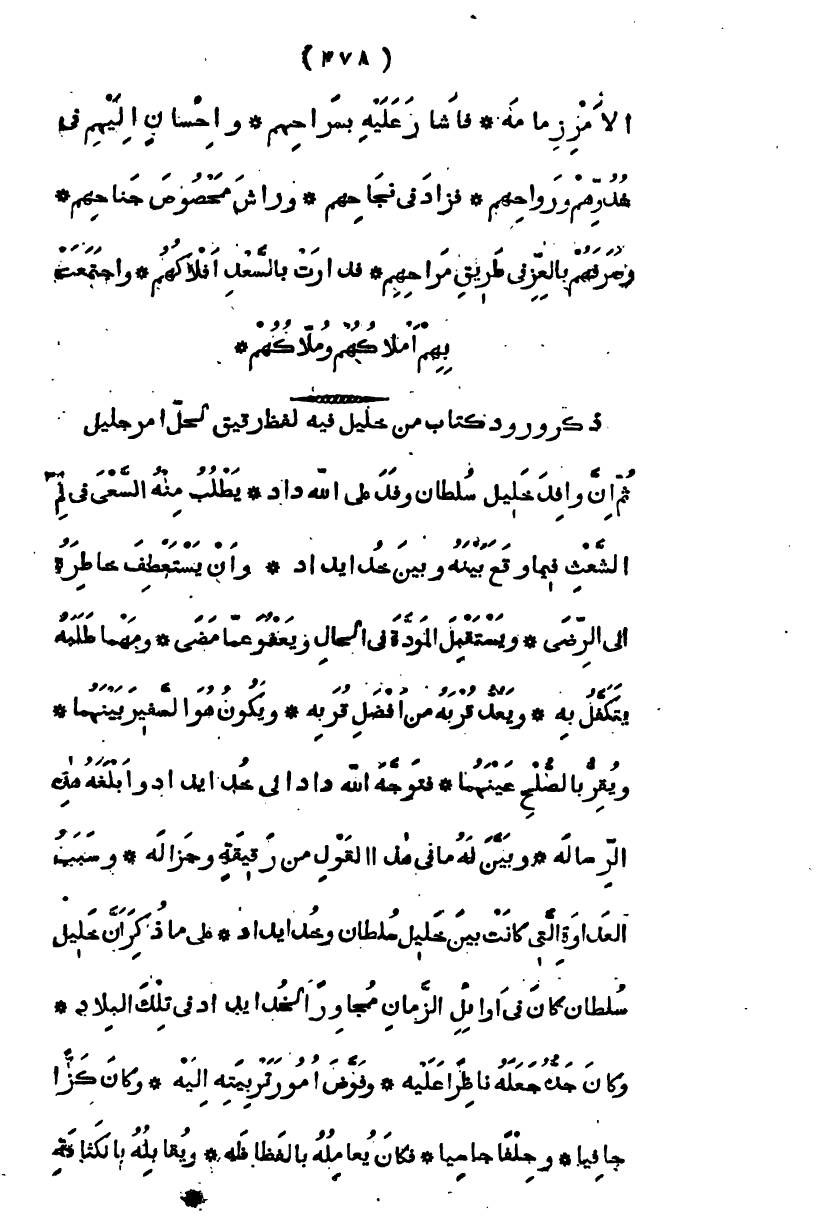 ( ٤٧٨ )
الاَمْرِ زِمامَه * فاَشارَ عَلَيْهِ بسَراحِهم * واِحْسانٍ اِلَيْهِم فى
غُدُوِّهِمْ ورَواحِهِم * فزادَ فى نَجاحِهم * وراشَ مَحْصُوصَ جَناحِهم *
بالعِزِّ فى طَرِيقِ مَراحِهِم * فدارَتْ بالسَّعْدِ اَفْلاكُهُم * واجْتَمَعَتْ
بِهِمْ اَمْلاكُهُمْ ومُلّاكُهُمْ *
ذكر ورود كتاب من خليل فيه لفظ رقيق لحلّ امر جليل
ثُمّ اِنَّ وافِدَ خَلِيل سُلطان وفَدَ على اللّٰه داد * يَطْلُبُ مِنْهُ السَّعْىَ فى لَمِّ
الشَّعْثِ فيما وقَع بَيْنَهُ وبين خُدايداد * واَنْ يَسْتَعْطِفَ خاطِرَهُ
الى الرِّضَى * ويَسْتَقْبِلَ المَودَّةَ فى الحالِ ويَعْفُوَ عمّا مَضَى * ومَهْما طَلَبَهُ
يتَكَفَّلُ بِه * ويَعُدُّ قُرْبَهُ من اَفْضَلِ قُرَبِه * ويَكُونُ هُوَ السَّفِيرَ بَيْنَهُما *
ويُقِرُّ بالصُّلْحِ عَيْنَهُما * فتَوجَّهَ اللّٰه داد الى خُدايداد واَبْلَغَهُ هٰذِه
الرِّساله * وبَيَّنَ لَهُ ما فى هٰذا القَوْلِ من رَقِيقَةٍ وجَزالَه * وسَبَبُ
العَداوَةِ الَّتِى كانَتْ بينَ خَلِيل سُلطان وخُدايداد * على ما ذُكِرَ اَنَّ خَلِيل
سُلطان كانَ فى اَوائِلِ الزَّمانِ مُجاوِرًا لخُدايداد فى تِلْكَ البِلاد *
وكانَ جَدُّهُ جَعَلَهُ ناظِرًا عَلَيْه * وفَوَّضَ اُمُورَ تَرْبِيَتِه اِلَيْه * وكانَ كَزًّا
جافِيا * وجِلْفًا جاسِيا * فكانَ يُعامِلُهُ بالفَظاظَه * ويُقابِلُهُ بالكَثافَةِ